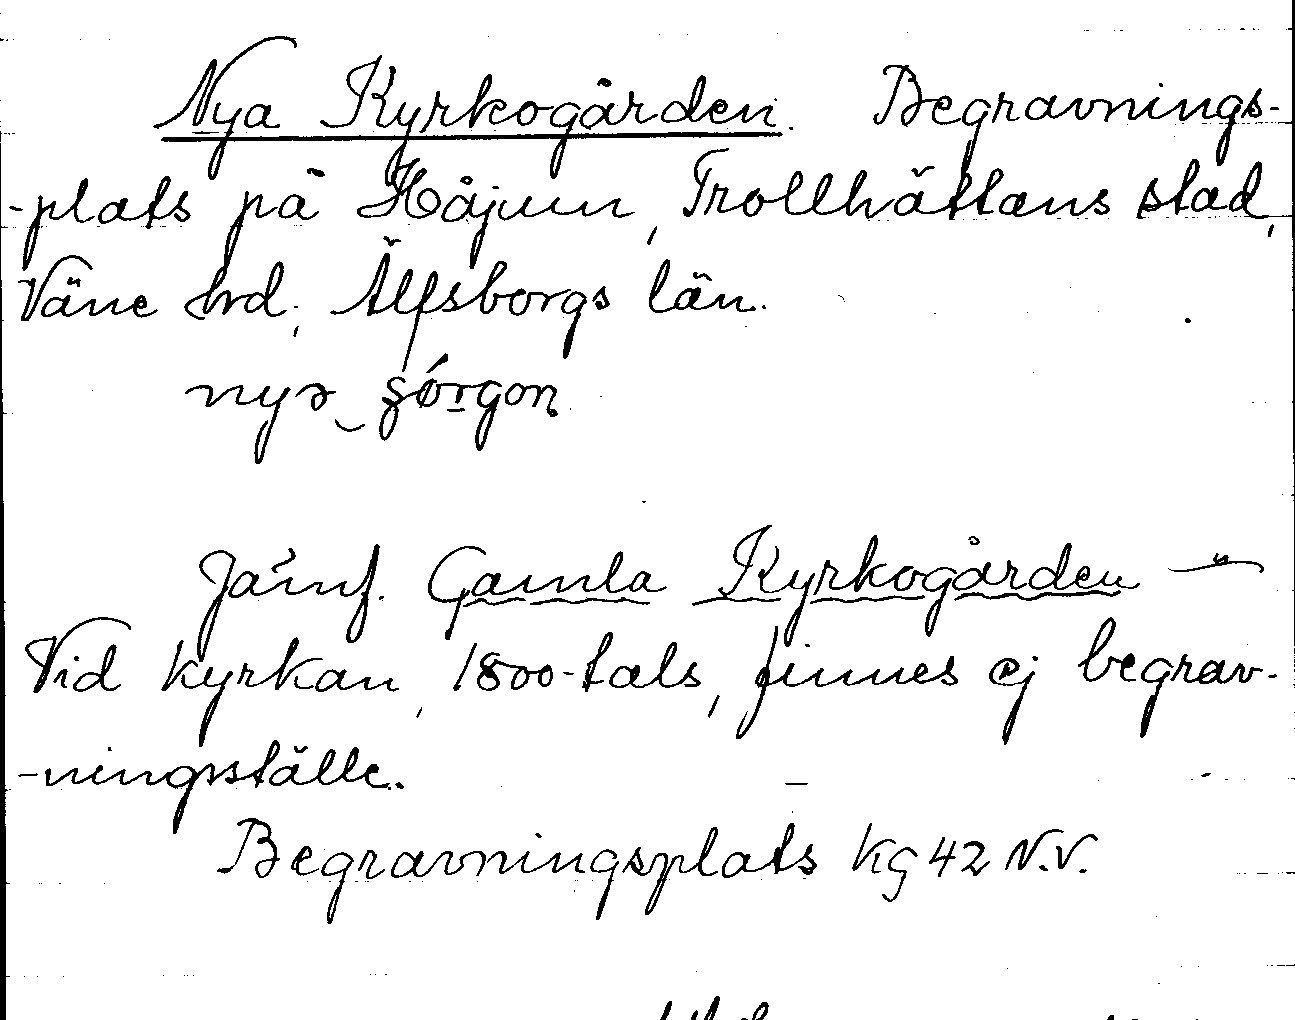 Nya Kyrkogården. Begravnings-
-plats på Håjum, Trollhättans stad,
Väne hrd, Älfsborgs län.
Jämf. Gamla Kyrkogården —"—
Vid kyrkan, 1800-tals, finnes ej begrav-
-ningsställe.
Begravningsplats Kg 42 N.V.